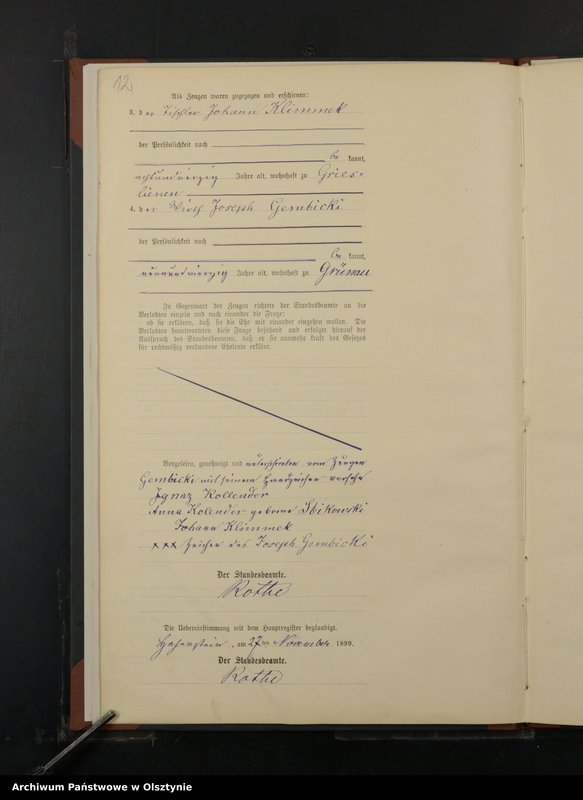 12
Als Zeugen waren zugezogen und erschienen:
3. der Tischler Johann Klimmek
der Persönlichkeit nach
be kannt,
achtundvierzig Jahre alt, wohnhaft zu Gries=
lienen
4. der Wirth Joseph Gembicki
der Persönlichkeit nach
be kannt,
neunundvierzig Jahre alt, wohnhaft zu Grünau
In Gegenwart der Zeugen richtete der Standesbeamte an die
Verlobten einzeln und nach einander die Frage:
ob sie erklären, daß sie die Ehe mit einander eingehen wollen. Die
Verlobten beantworteten diese Frage bejahend und erfolgte hierauf der
Ausspruch des Standesbeamten, daß er sie nunmehr kraft des Gesetzes
für rechtmäßig verbundene Eheleute erkläre.
Vorgelesen, genehmigt und unterschrieben vom Zeugen
Gembicki mit seinem Handzeichen versehn
Ignaz Kollender
Anna Kolender geborne Sbikowski
Johann Klimmek
+++ Zeichen des Joseph Gembicki
Der Standesbeamte.
Rothe
Die Uebereinstimmung mit dem Hauptregister beglaubigt.
Hohenstein, am 27 ten November 1899.
Der Standesbeamte.
Rothe
Archiwum Państwowe w Olsztynie